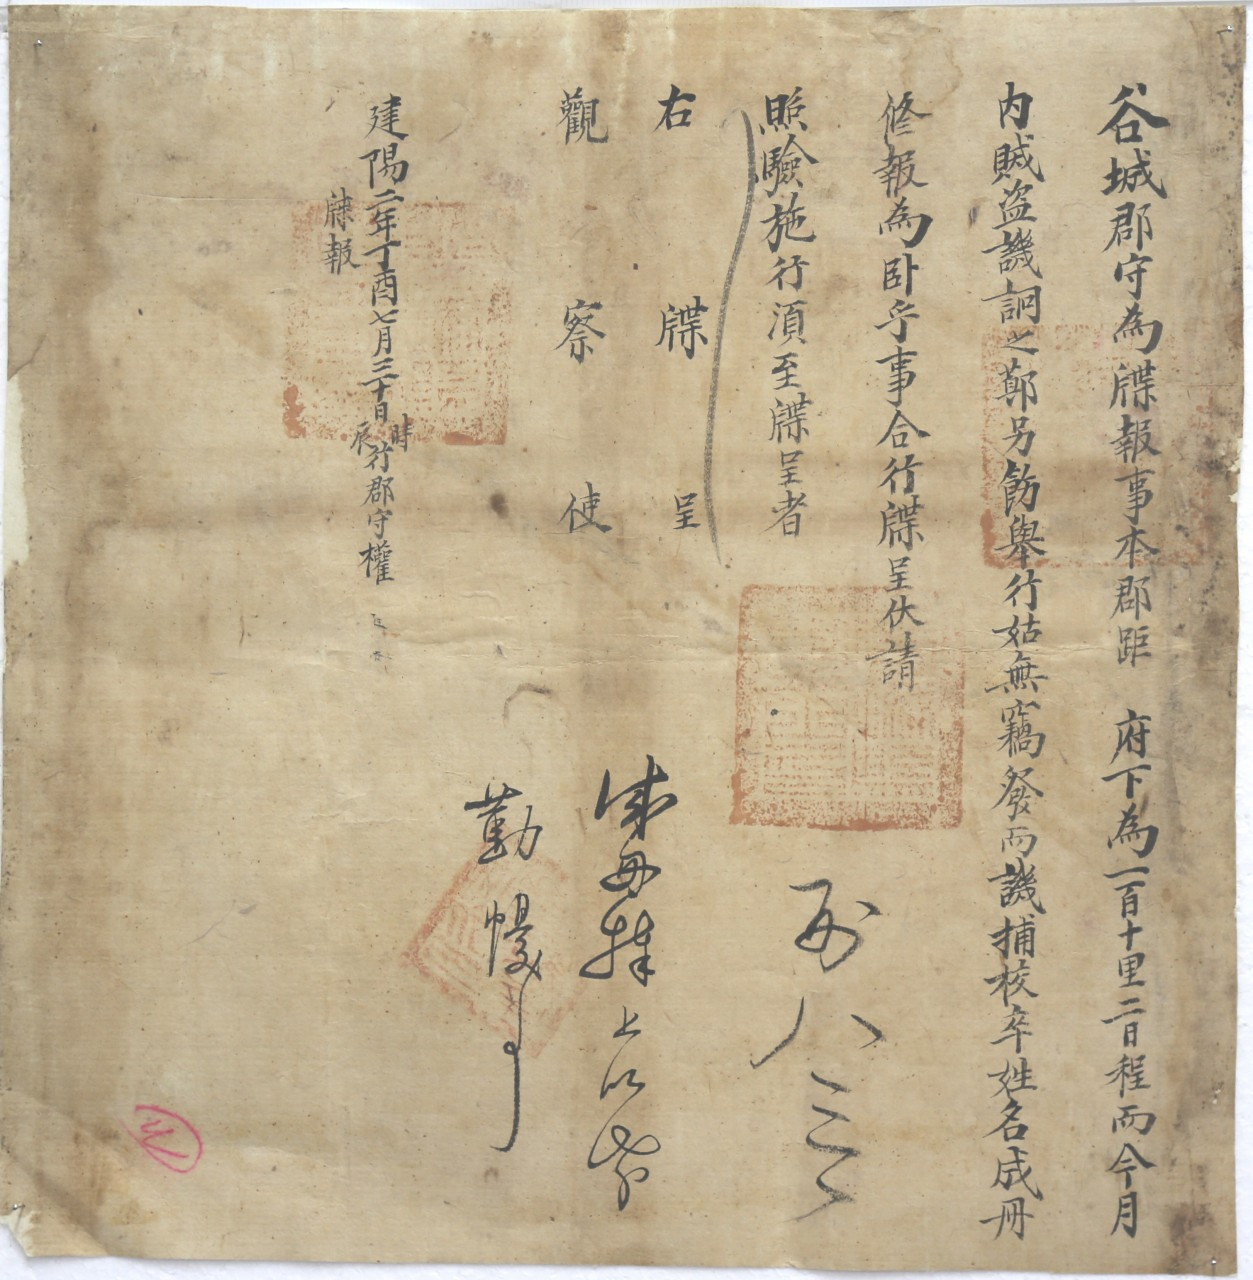 谷城郡守為牒報事本郡距 府下為一百十里二日程而今月
内賊盜譏詗之節另飭舉行姑無竊發而譏捕校卒姓名成冊
修報為臥乎事合行牒呈伏請
照驗施行須至牒呈者
右 牒 呈
觀 察 使
建陽二年丁酉七月三十日時辰行郡守權
牒報
到 八 三
上以
勤